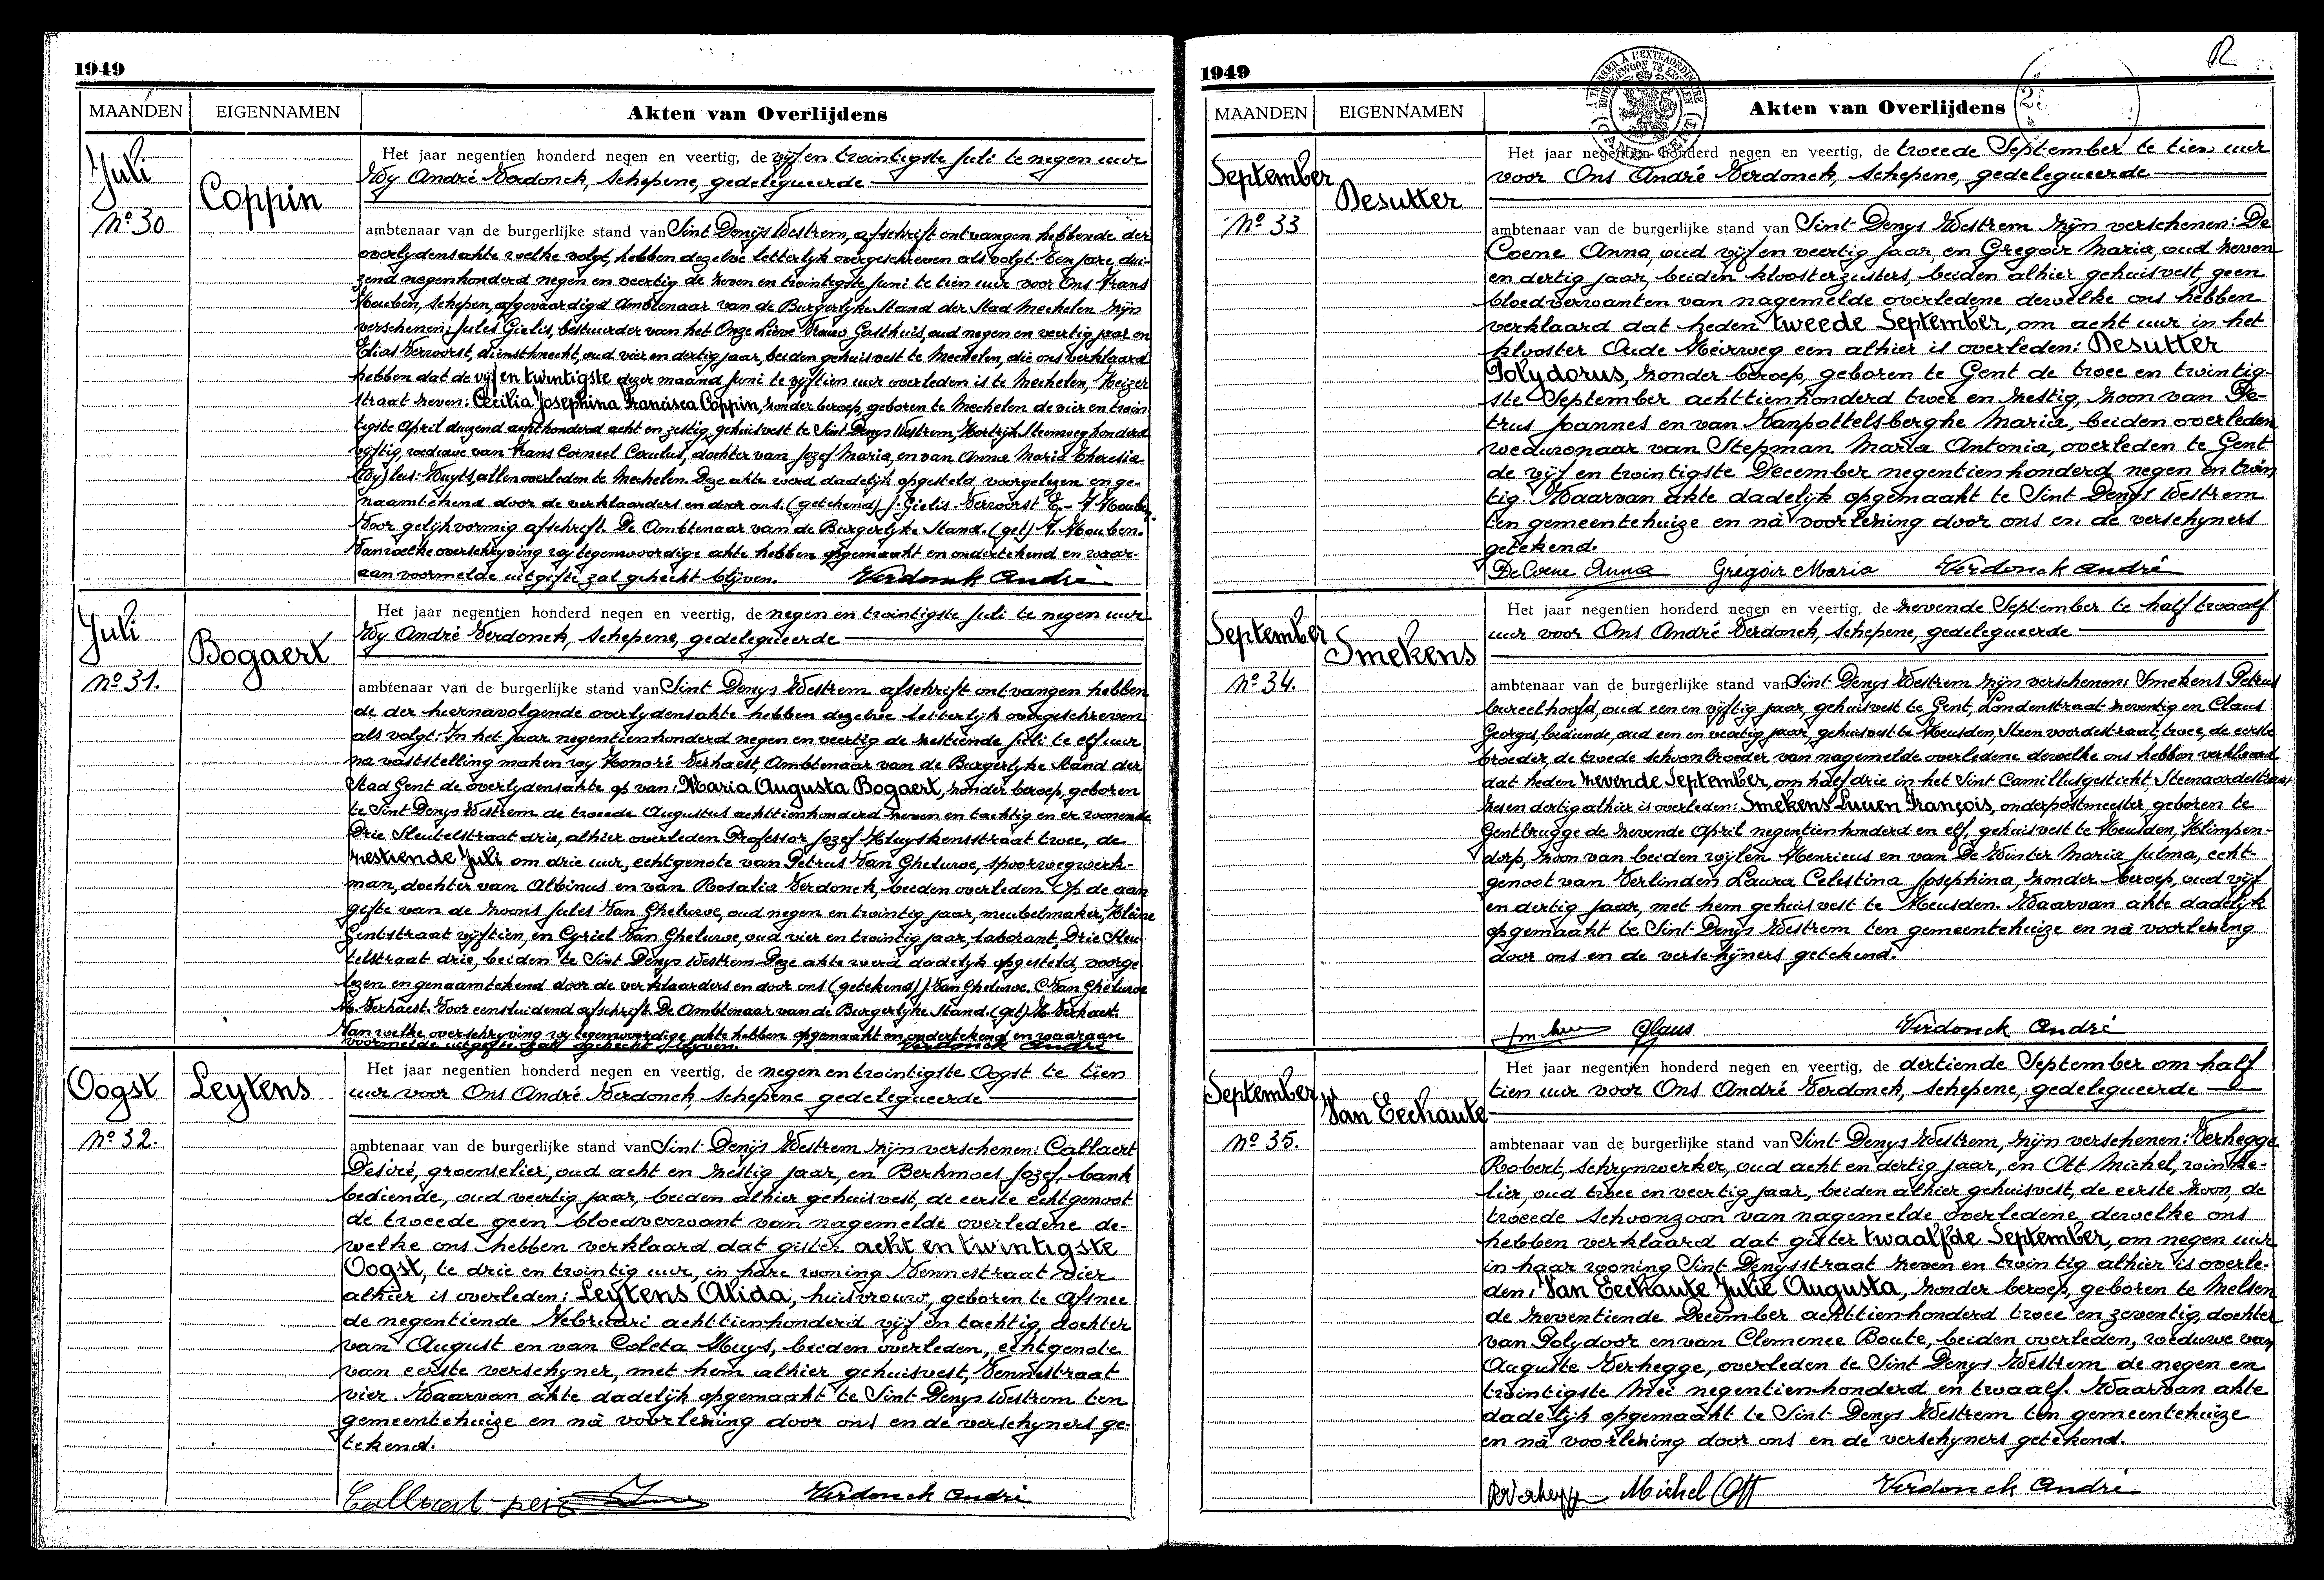 1949
MAANDEN EIGENNAMEN Akten van Overlijdens
Juli
Nº 30
Coppin
Het jaar negentien honderd negen en veertig, de vijf en twintigste Juli te negen uur
Wy André Verdonck, Schepene, gedelegueerde
ambtenaar van de burgerlijke stand van Sint Denijs Westrem, afschrift ontvangen hebbende der
overlydensakte welke volgt, hebben dezelve letterlyk overgeschreven als volgt: Een jare dui-
zend negenhonderd negen en veertig de zeven en twintigste Juni te tien uur voor Ons Frans
Houben, Schepen, afgevaardigd Ambtenaar van de Burgerlyke Stand der Stad Mechelen zijn
verschenen: Jules Gielis, bestuurder van het Onze Lieve Vrouw Gasthuis, oud negen en veertig jaar en
Elias Vervoorst, dienstknecht, oud vier en dertig jaar, beiden gehuisvest te Mechelen, die ons verklaard
hebben dat de vijf en twintigste dezer maand Juni te vijftien uur overleden is te Mechelen, Keizer
straat zeven: Cecilia Josephina Francisca Coppin, zonder beroep, geboren te Mechelen de vier en twin
tigste April duizend achthonderd acht en zestig, gehuisvest te Sint Denys Westrem, Kortrijk Steenweg honderd
vijftig, weduwe van Frans Corneel Ceulus, dochter van Jozef Maria, en van Anna Maria Theresia
Huyts, allen overleden te Mechelen. Deze akte werd dadelijk opgesteld, voorgelezen en ge-
naamtekend door de verklaarders en door ons. (getekend) J. Gielis Vervoorst E. - F Houben.
Voor gelijkvormig afschrift. De Ambtenaar van de Burgerlyke Stand. (get) F. Houben.
Van welke overschryving wy tegenwoordige akte hebben opgemaakt en ondertekend en waar-
aan voormelde uitgifte zal gehecht blijven. Verdonck André
Juli
Nº 31.
Bogaert
Het jaar negentien honderd negen en veertig, de negen en twintigste Juli te negen uur
Wy André Verdonck, Schepene, gedelegueerde
ambtenaar van de burgerlijke stand van Sint Denys Westrem afschrift ontvangen hebben
de der hiernavolgende overlydensakte hebben dezelve letterlyk overgeschreven
als volgt: In het jaar negentienhonderd negen en veertig de zestiende Juli te elf uur
na vaststelling maken wy Honoré Verhaest, Ambtenaar van de Burgerlyke Stand der
Stad Gent de overlydensakte op van: Maria Augusta Bogaert, zonder beroep, geboren
te Sint Denys Westrem de tweede Augustus achttienhonderd zeven en tachtig en er wonende
Drie Sleutelstraat drie, alhier overleden Professor Jozef Kluyskensstraat twee, de
zestiende Juli om drie uur, echtgenote van Petrus Van Gheluwe, spoorwegwerk-
man, dochter van Albinus en van Rosalia Verdonck, beiden overleden. Op de aan
gifte van de zoons Jules Van Gheluwe, oud negen en twintig jaar, meubelmaker, Kleine
Gentstraat vijftien, en Cyriel Van Gheluwe, oud vier en twintig jaar, laborant, Drie Sleu
telstraat drie, beiden te Sint Denys Westrem. Deze akte werd dadelyk opgesteld, voorge
lezen en genaamtekend door de verklaarders en door ons (getekend) J. Van Gheluwe. C. Van Gheluwe
H. Verhaest. Voor eensluidend afschrift. De Ambtenaar van de Burgerlyke Stand. (get) H. Verhaest.
Van welke overschryving wy tegenwoordige akte hebben opgemaakt en ondertekend en waaraan
voormelde uitgifte zal gehecht blijven. Verdonck André
Oogst
Nº 32.
Leytens
Het jaar negentien honderd negen en veertig, de negen en twintigste Oogst te tien
uur voor Ons André Verdonck, Schepene gedelegueerde
ambtenaar van de burgerlijke stand van Sint Denijs Westrem zijn verschenen: Callaert
Desiré, groenselier, oud acht en zestig jaar, en Berkmoes Jozef, bank
bediende, oud veertig jaar, beiden alhier gehuisvest, de eerste echtgenoot
de tweede geen bloedverwant van nagemelde overledene de-
welke ons hebben verklaard dat gister acht en twintigste
Oogst, te drie en twintig uur, in hare woning Vennestraat vier
alhier is overleden: Leytens Alida, huisvrouw, geboren te Afsnee
de negentiende Februari achttienhonderd vijf en tachtig, dochter
van August en van Coleta Huys, beiden overleden, echtgenote
van eerste verschyner, met hem alhier gehuisvest, Vennestraat
vier. Waarvan akte dadelijk opgemaakt te Sint Denys Westrem ten
gemeentehuize en nà voorlezing door ons en de verschyners ge-
tekend.
Callaert Verdonck André
1949
MAANDEN EIGENNAMEN Akten van Overlijdens
September
Nº 33
Desutter
Het jaar negentien honderd negen en veertig, de tweede September te tien uur
voor Ons André Verdonck, Schepene, gedelegueerde
ambtenaar van de burgerlijke stand van Sint Denys Westrem zijn verschenen: De
Coene Anna, oud vijf en veertig jaar, en Gregoir Maria, oud zeven
en dertig jaar, beiden kloosterzusters, beiden alhier gehuisvest geen
bloedverwanten van nagemelde overledene dewelke ons hebben
verklaard dat heden tweede September, om acht uur in het
klooster Oude Heirweg een alhier is overleden: Desutter
Polydorus, zonder beroep, geboren te Gent de twee en twintig-
ste September achttienhonderd twee en zestig, zoon van Pe-
trus Joannes en van Vanpottelsberghe Maria, beiden overleden
weduwnaar van Stepman Maria Antonia, overleden te Gent
de vijf en twintigste December negentienhonderd negen en twin
tig. Waarvan akte dadelijk opgemaakt te Sint Denys Westrem
ten gemeentehuize en nà voorlezing door ons en de verschyners
getekend.
De Coene Anna Grégoir Maria Verdonck André
September
Nº 34.
Smekens
Het jaar negentien honderd negen en veertig, de zevende September te half twaalf
uur voor Ons André Verdonck, Schepene, gedelegueerde
ambtenaar van de burgerlijke stand van Sint Denys Westrem zijn verschenen: Smekens Petrus
bureelhoofd, oud een en vijftig jaar, gehuisvest te Gent, Londenstraat zeventig en Claus
Georges, bediende, oud een en veertig jaar, gehuisvest te Heusden, Steenvoordestraat, twee, de eerste
broeder, de tweede schoonbroeder van nagemelde overledene dewelke ons hebben verklaard
dat heden zevende September, om half drie in het Sint Camillusgesticht, Steenaardestraat
zes en dertig alhier is overleden: Smekens Lucien François, onderpostmeester, geboren te
Gentbrugge de zevende April negentienhonderd en elf, gehuisvest te Heusden, Klimpen-
dorp, zoon van beiden wijlen Henricus en van De Winter Maria Julma, echt-
genoot van Verlinden Laura Celestina Josephina, zonder beroep, oud vijf
en dertig jaar, met hem gehuisvest te Heusden. Waarvan akte dadelijk
opgemaakt te Sint-Denijs Westrem ten gemeentehuize en nà voorlezing
door ons en de verschijners getekend.
Smekens Claus Verdonck André
September
Nº 35.
Van Eechaute
Het jaar negentien honderd negen en veertig, de dertiende September om half
tien uur voor Ons André Verdonck, Schepene, gedelegueerde
ambtenaar van de burgerlijke stand van Sint-Denys Westrem, zijn verschenen: Verhegge
Robert, schrynwerker, oud acht en dertig jaar, en Ott Michel, winke-
lier, oud twee en veertig jaar, beiden alhier gehuisvest, de eerste zoon, de
tweede schoonzoon van nagemelde overledene, dewelke ons
hebben verklaard dat gister twaalfde September, om negen uur
in haar woning Sint-Denysstraat zeven en twintig alhier is overle-
den: Van Eechaute Julie Augusta, zonder beroep, geboren te Melsen
de zeventiende December achttienhonderd twee en zeventig, dochter
van Polydoor en van Clemence Boute, beiden overleden, weduwe van
Auguste Verhegge, overleden te Sint Denys Westrem de negen en
twintigste Mei negentienhonderd en twaalf. Waarvan akte
dadelijk opgemaakt te Sint Denys Westrem ten gemeentehuize
en nà voorlezing door ons en de verschyners getekend.
RVerhegge Michel Ott Verdonck André